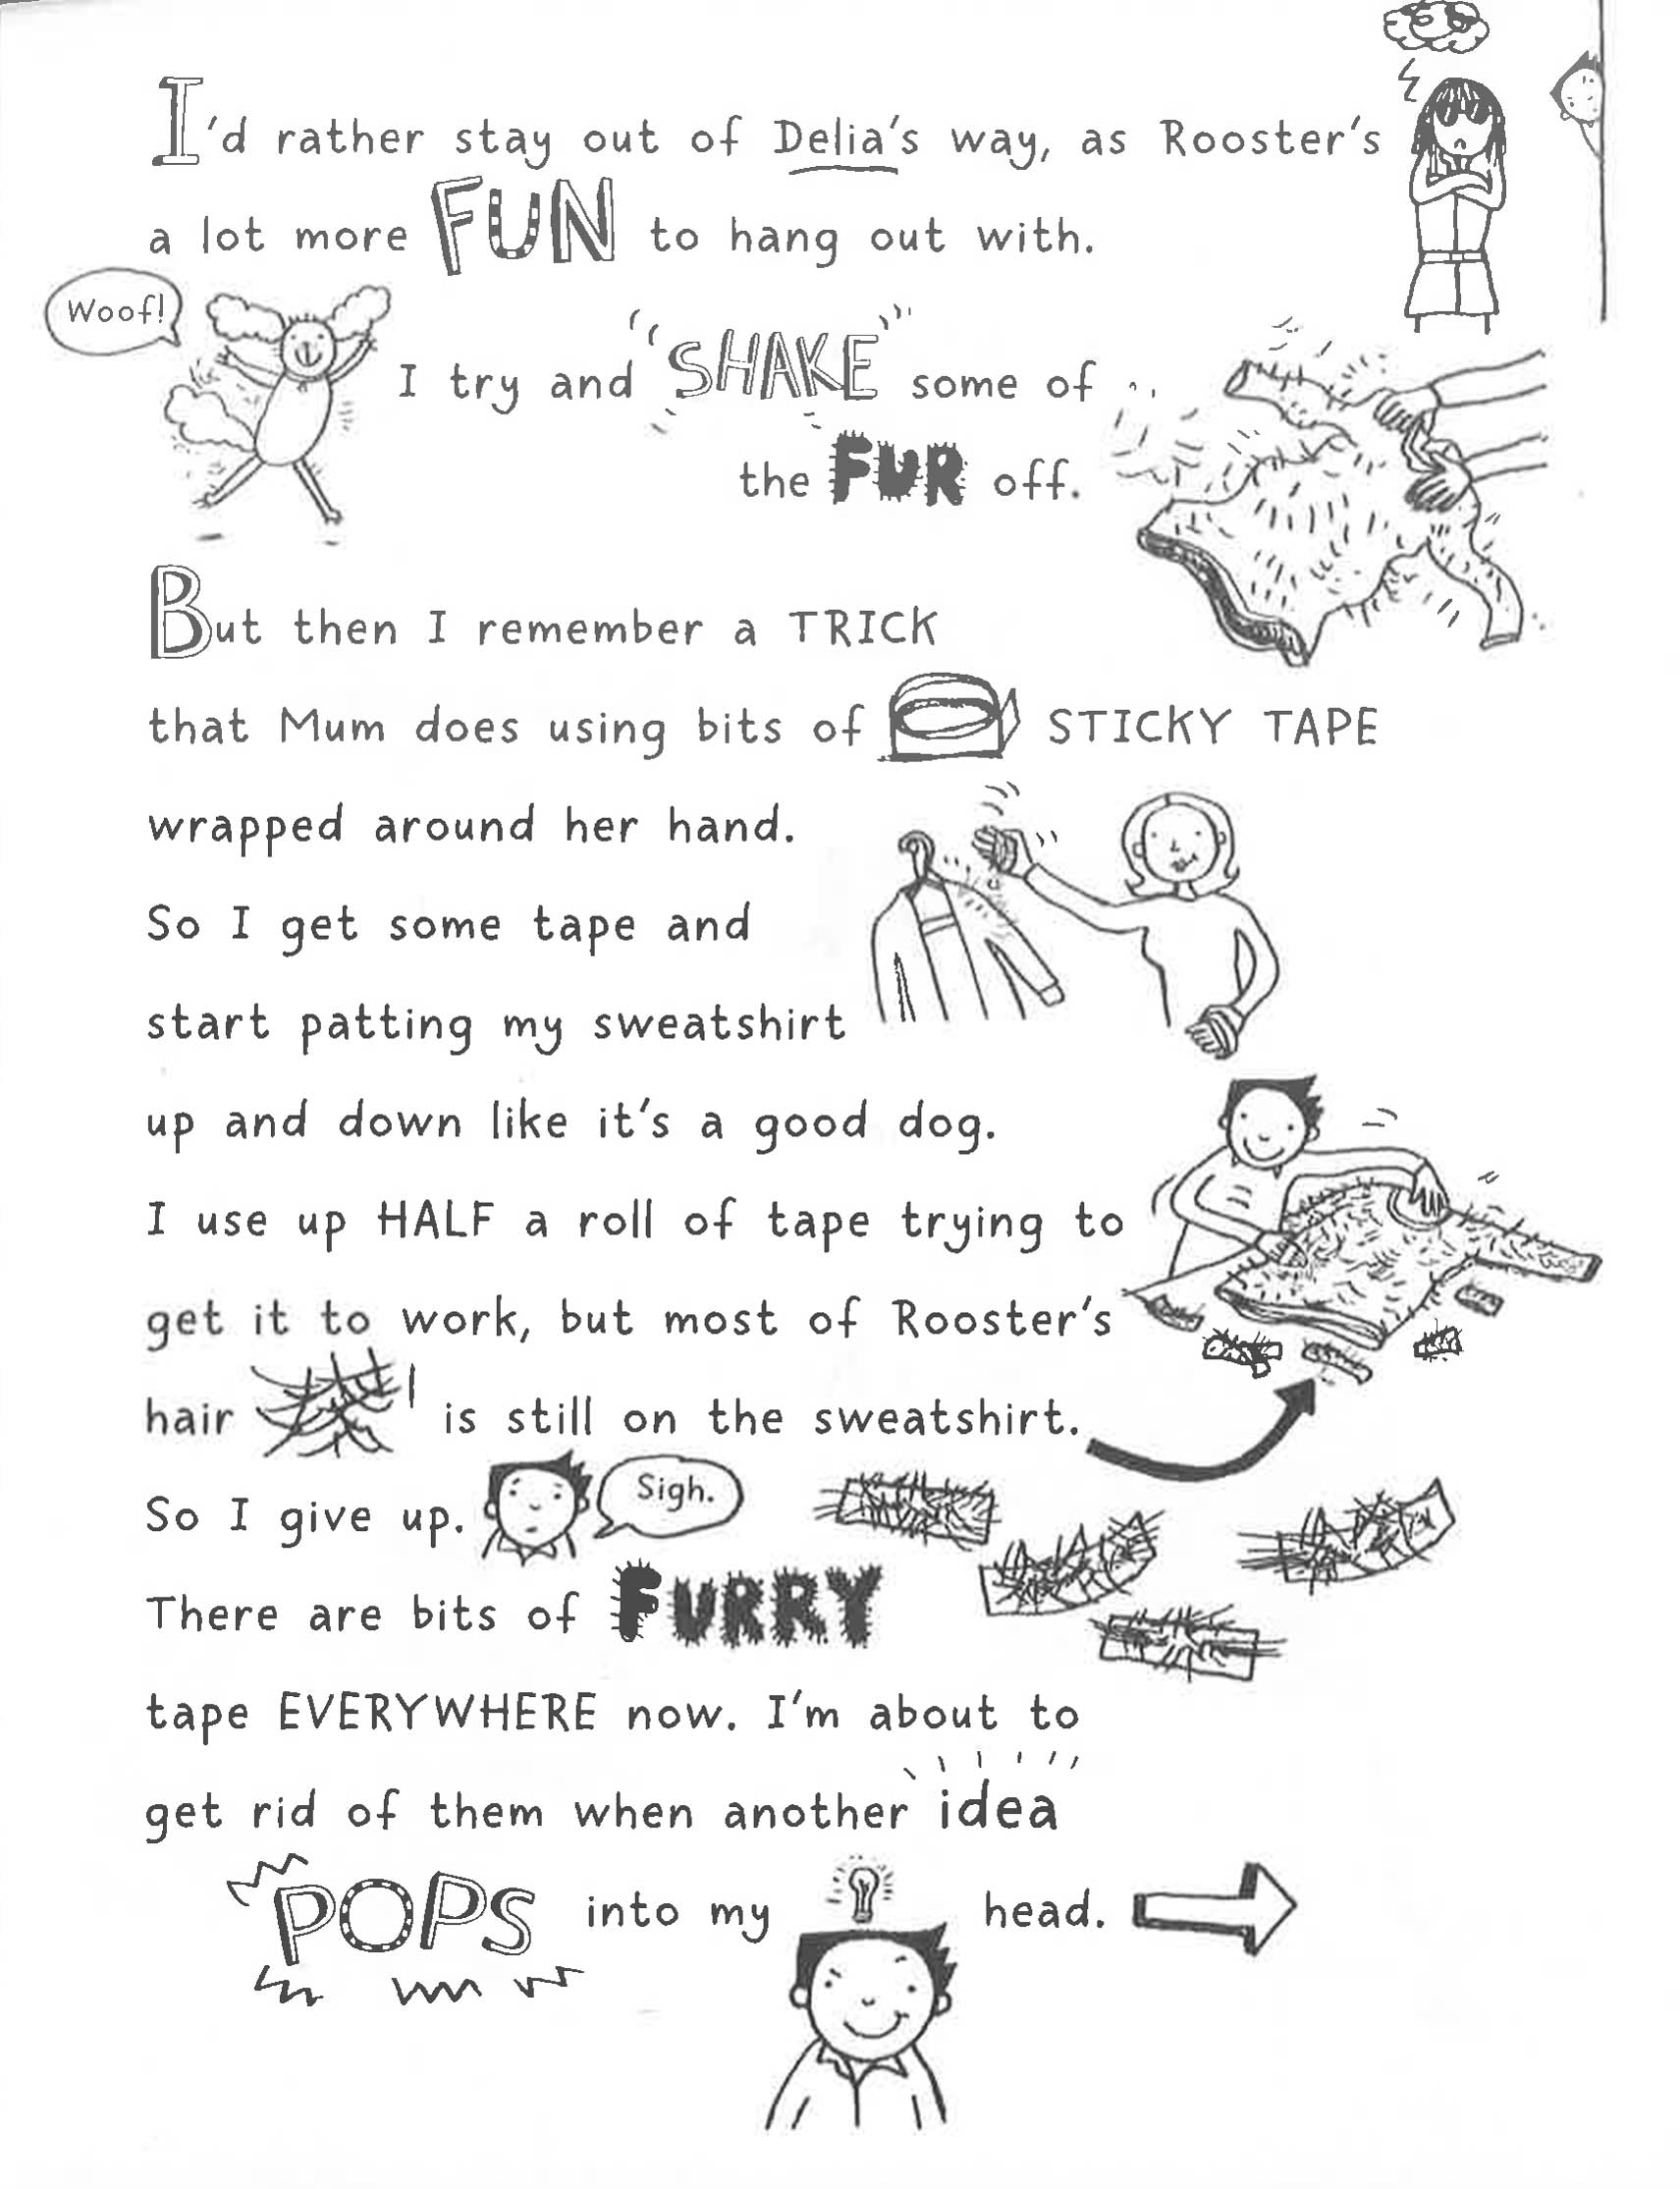 I'd rather stay out of Delia's way, as Rooster's
a lot more FUN to hang out with.
Woof!
I try and SHAKE some of
the FUR off.
But then I remember a TRICK
that Mum does using bits of STICKY TAPE
wrapped around her hand.
So I get some tape and
start patting my sweatshirt
up and down like it's a good dog.
I use up HALF a roll of tape trying to
get it to work, but most of Rooster's
hair is still on the sweatshirt.
So I give up. Sigh.
There are bits of FURRY
tape EVERYWHERE now. I'm about to
get rid of them when another idea
POPS into my head.